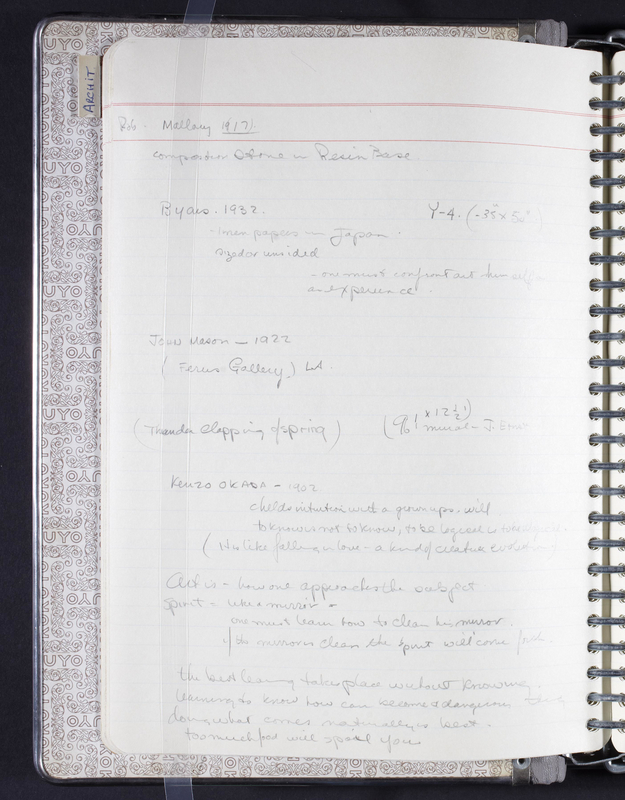 ARCHIT
Rob. Mallary 1917.
composition Stone in Resin Base
Byars. 1932. Y-4.
papers in Japan.
sized or unsided
- one must confront art himself
as experience.
John Mason - 1922
(Ferus Gallery) LA.
(Thunder Clapping of Spring) (9' x 12 1/2)
mural - J.
Kenzo OKADA - 1902
childs intuition with a grown ups. will
to know is not to know, to be logical is
(It is like falling in love - a kind of creative
Art is - how one approaches the subject
Spirit - like a mirror -
one must learn how to clean his mirror.
if the mirror is clean the spirit will come
the best learning takes place without knowing.
learning to know how can become a dangerous thing
doing what comes naturally is best.
too much food will spoil you